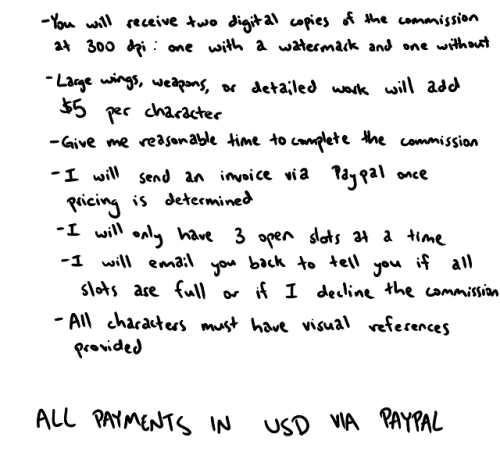 -You will receive two digital copies of the commission
at 300 dpi: one with a watermark and one without
-Large wings, weapons, or detailed work will add
$5 per character
-Give me reasonable time to complete the commission
-I will send an invoice via Paypal once
pricing is determined
-I will only have 3 open slots at a time
-I will email you back to tell you if all
slots are full or if I decline the commission
-All characters must have visual references
provided
ALL PAYMENTS IN USD VIA PAYPAL